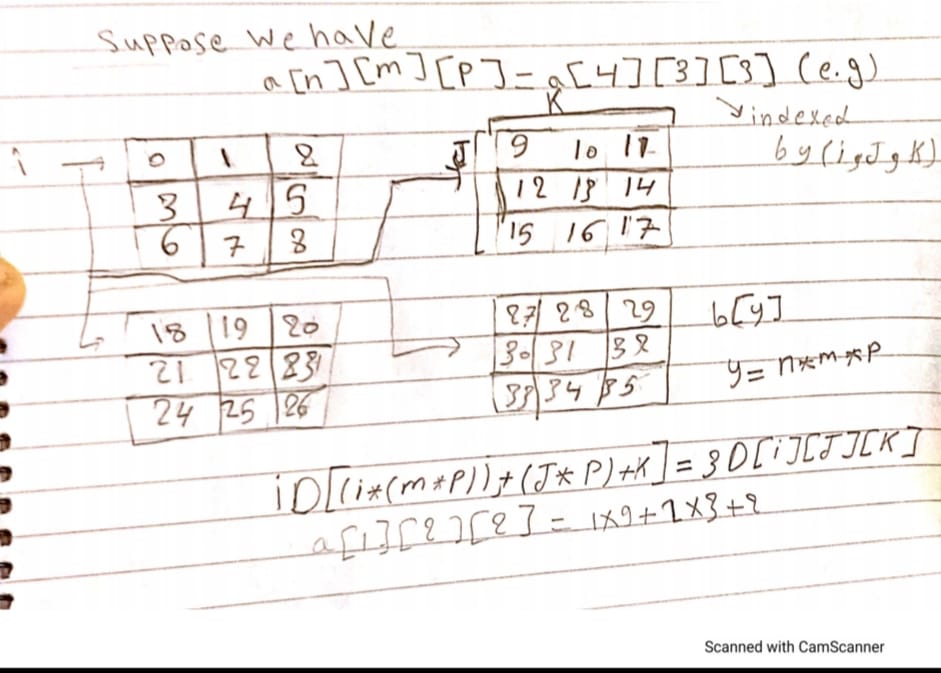 Suppose we have
a[n][m][P]= a[4][3][3] (e.g)
indexed
by (i,J,K)
K
i
J
0 1 2
3 4 5
6 7 8
9 10 11
12 13 14
15 16 17
18 19 20
21 22 23
24 25 26
27 28 29
30 31 32
33 34 35
b[y]
y= n*m*P
iD[(i*(m*P))+(J*P)+K]=3D[i][J][K]
a[1][2][2] = 1x9+2x3+2
Scanned with CamScanner